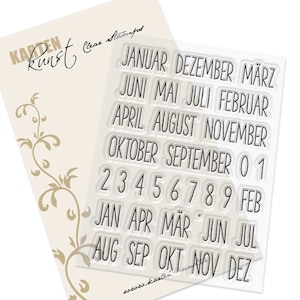 KARTEN
Kunst Clear Stamps
JANUAR DEZEMBER MÄRZ
JUNI MAI JULI FEBRUAR
APRIL AUGUST NOVEMBER
OKTOBER SEPTEMBER 0 1
2 3 4 5 6 7 8 9 FEB
JAN APR MÄR JUN JUL
AUG SEP OKT NOV DEZ